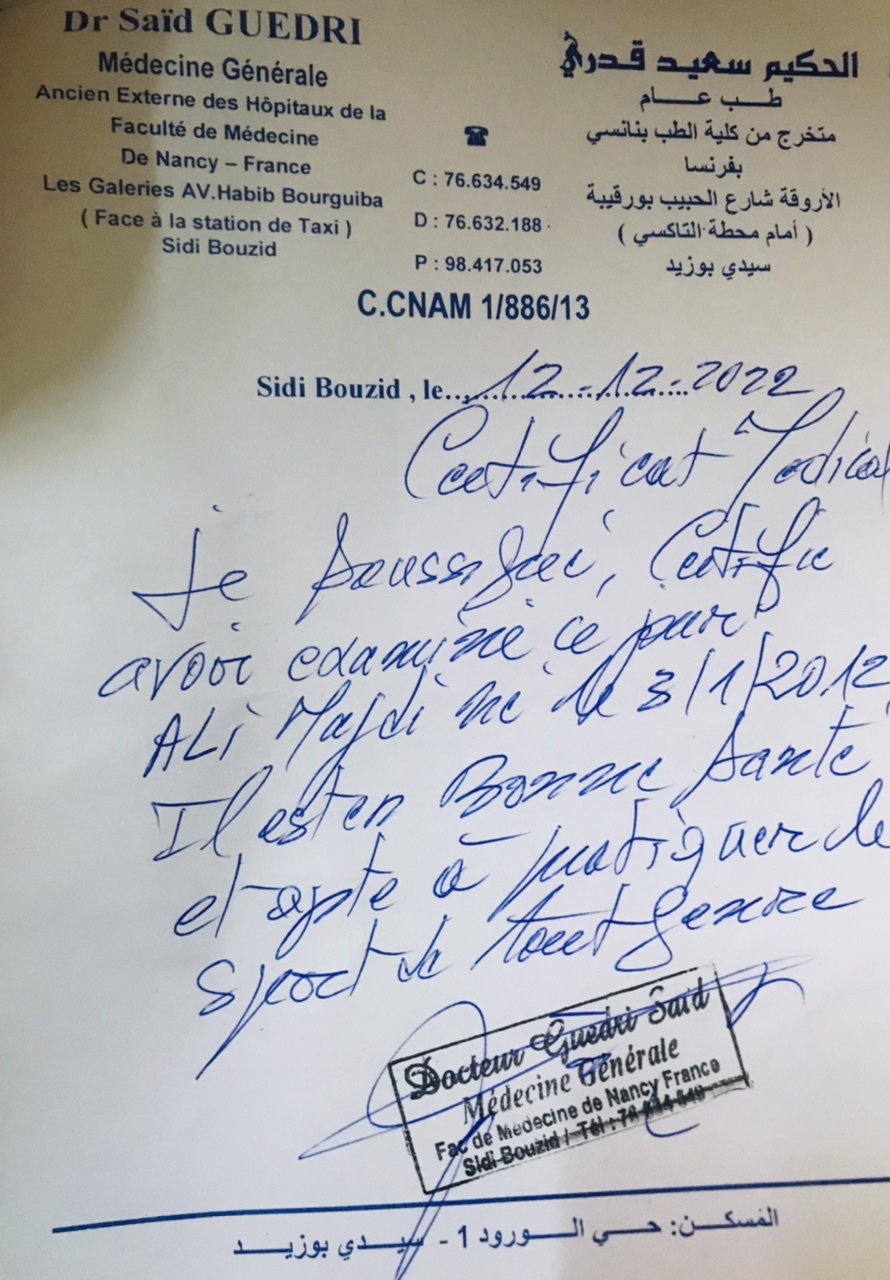 Dr Saïd GUEDRI
Médecine Générale
Ancien Externe des Hôpitaux de la
Faculté de Médecine
De Nancy – France
Les Galeries AV.Habib Bourguiba
( Face à la station de Taxi )
Sidi Bouzid
☎
C : 76.634.549
D : 76.632.188
P : 98.417.053
الحكيم سعيد قدري
طب عام
متخرج من كلية الطب بنانسي
بفرنسا
الأروقة شارع الحبيب بورقيبة
( أمام محطة التاكسي )
سيدي بوزيد
C.CNAM 1/886/13
Sidi Bouzid , le 12-12-2022
Certificat Medical
Je soussigné, Certifie
avoir examiné ce jour
ALi Majdi né le 3/1/2012
Il est en Bonne santé
et apte à pratiquer le
sport de tout genre
Docteur Guedri Saïd
Médecine Générale
Fac de Médecine de Nancy France
Sidi Bouzid / Tél : 76 634 549
المسكن: حي الورود 1 - سيدي بوزيد